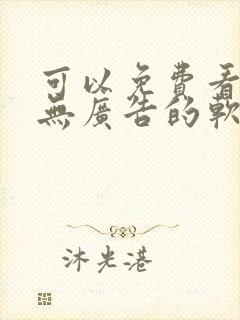 可以免費看
無廣告的軟
沐光港